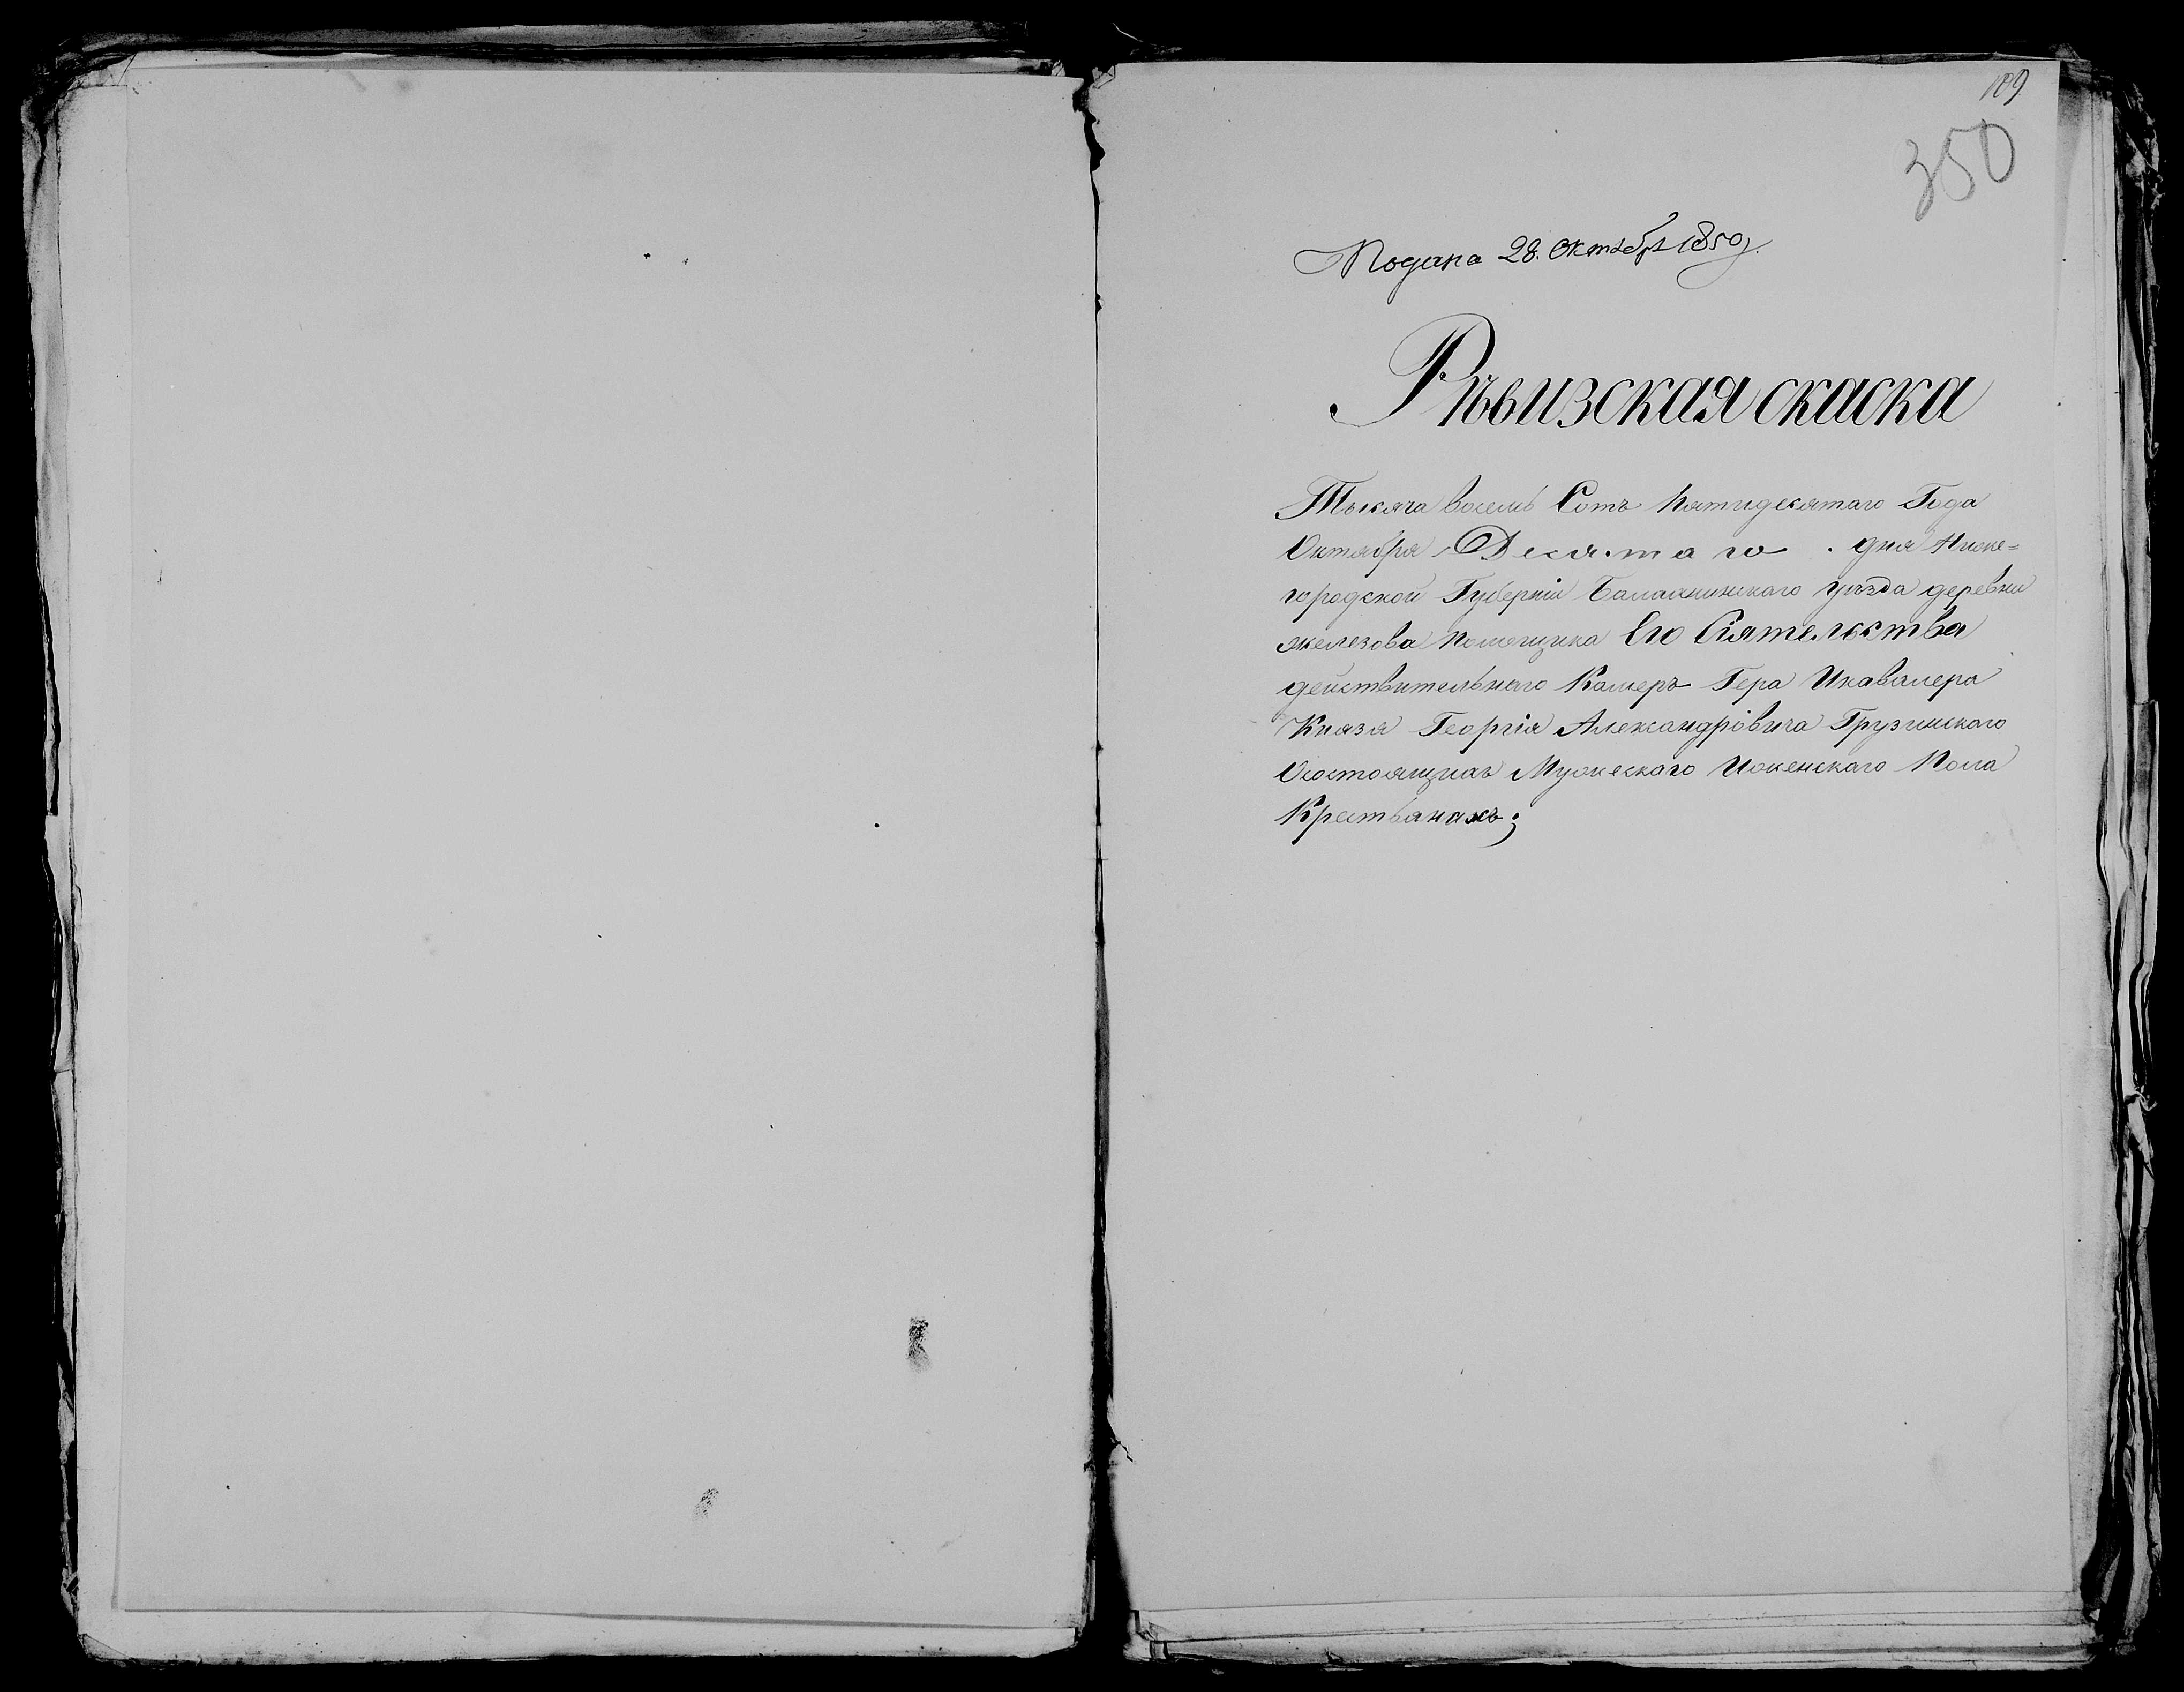 189
350
Подана 28. Октября 1850 г.
Ревизская скаска
Тысяча восемь Сотъ Пятидесятаго Года
Октября Десятаго дня Ниже=
городской Губерніи Балахнинскаго уѣзда деревни
железова помещика Его Сіятельства
действительнаго Камеръ Гера Икавалера
Князя Георгія Александровича Грузинскаго
Осостоящихъ Мужескаго Иженскаго Пола
Крестьянахъ;